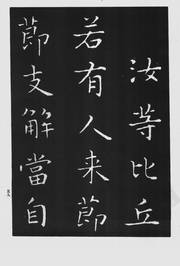 汝等比丘
若有人来節
節支解當自